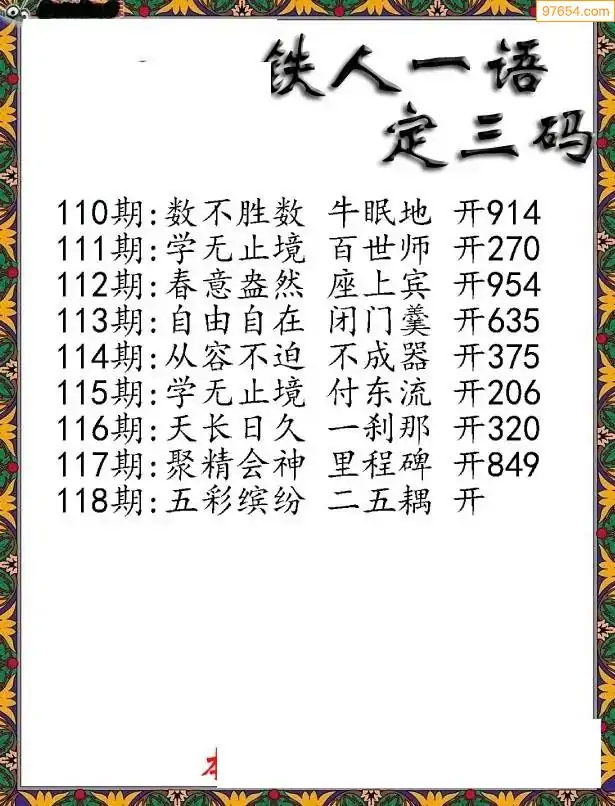 97654.com
铁人一语
定三码
110期:数不胜数 牛眠地 开914
111期:学无止境 百世师 开270
112期:春意盎然 座上宾 开954
113期:自由自在 闭门羹 开635
114期:从容不迫 不成器 开375
115期:学无止境 付东流 开206
116期:天长日久 一刹那 开320
117期:聚精会神 里程碑 开849
118期:五彩缤纷 二五耦 开